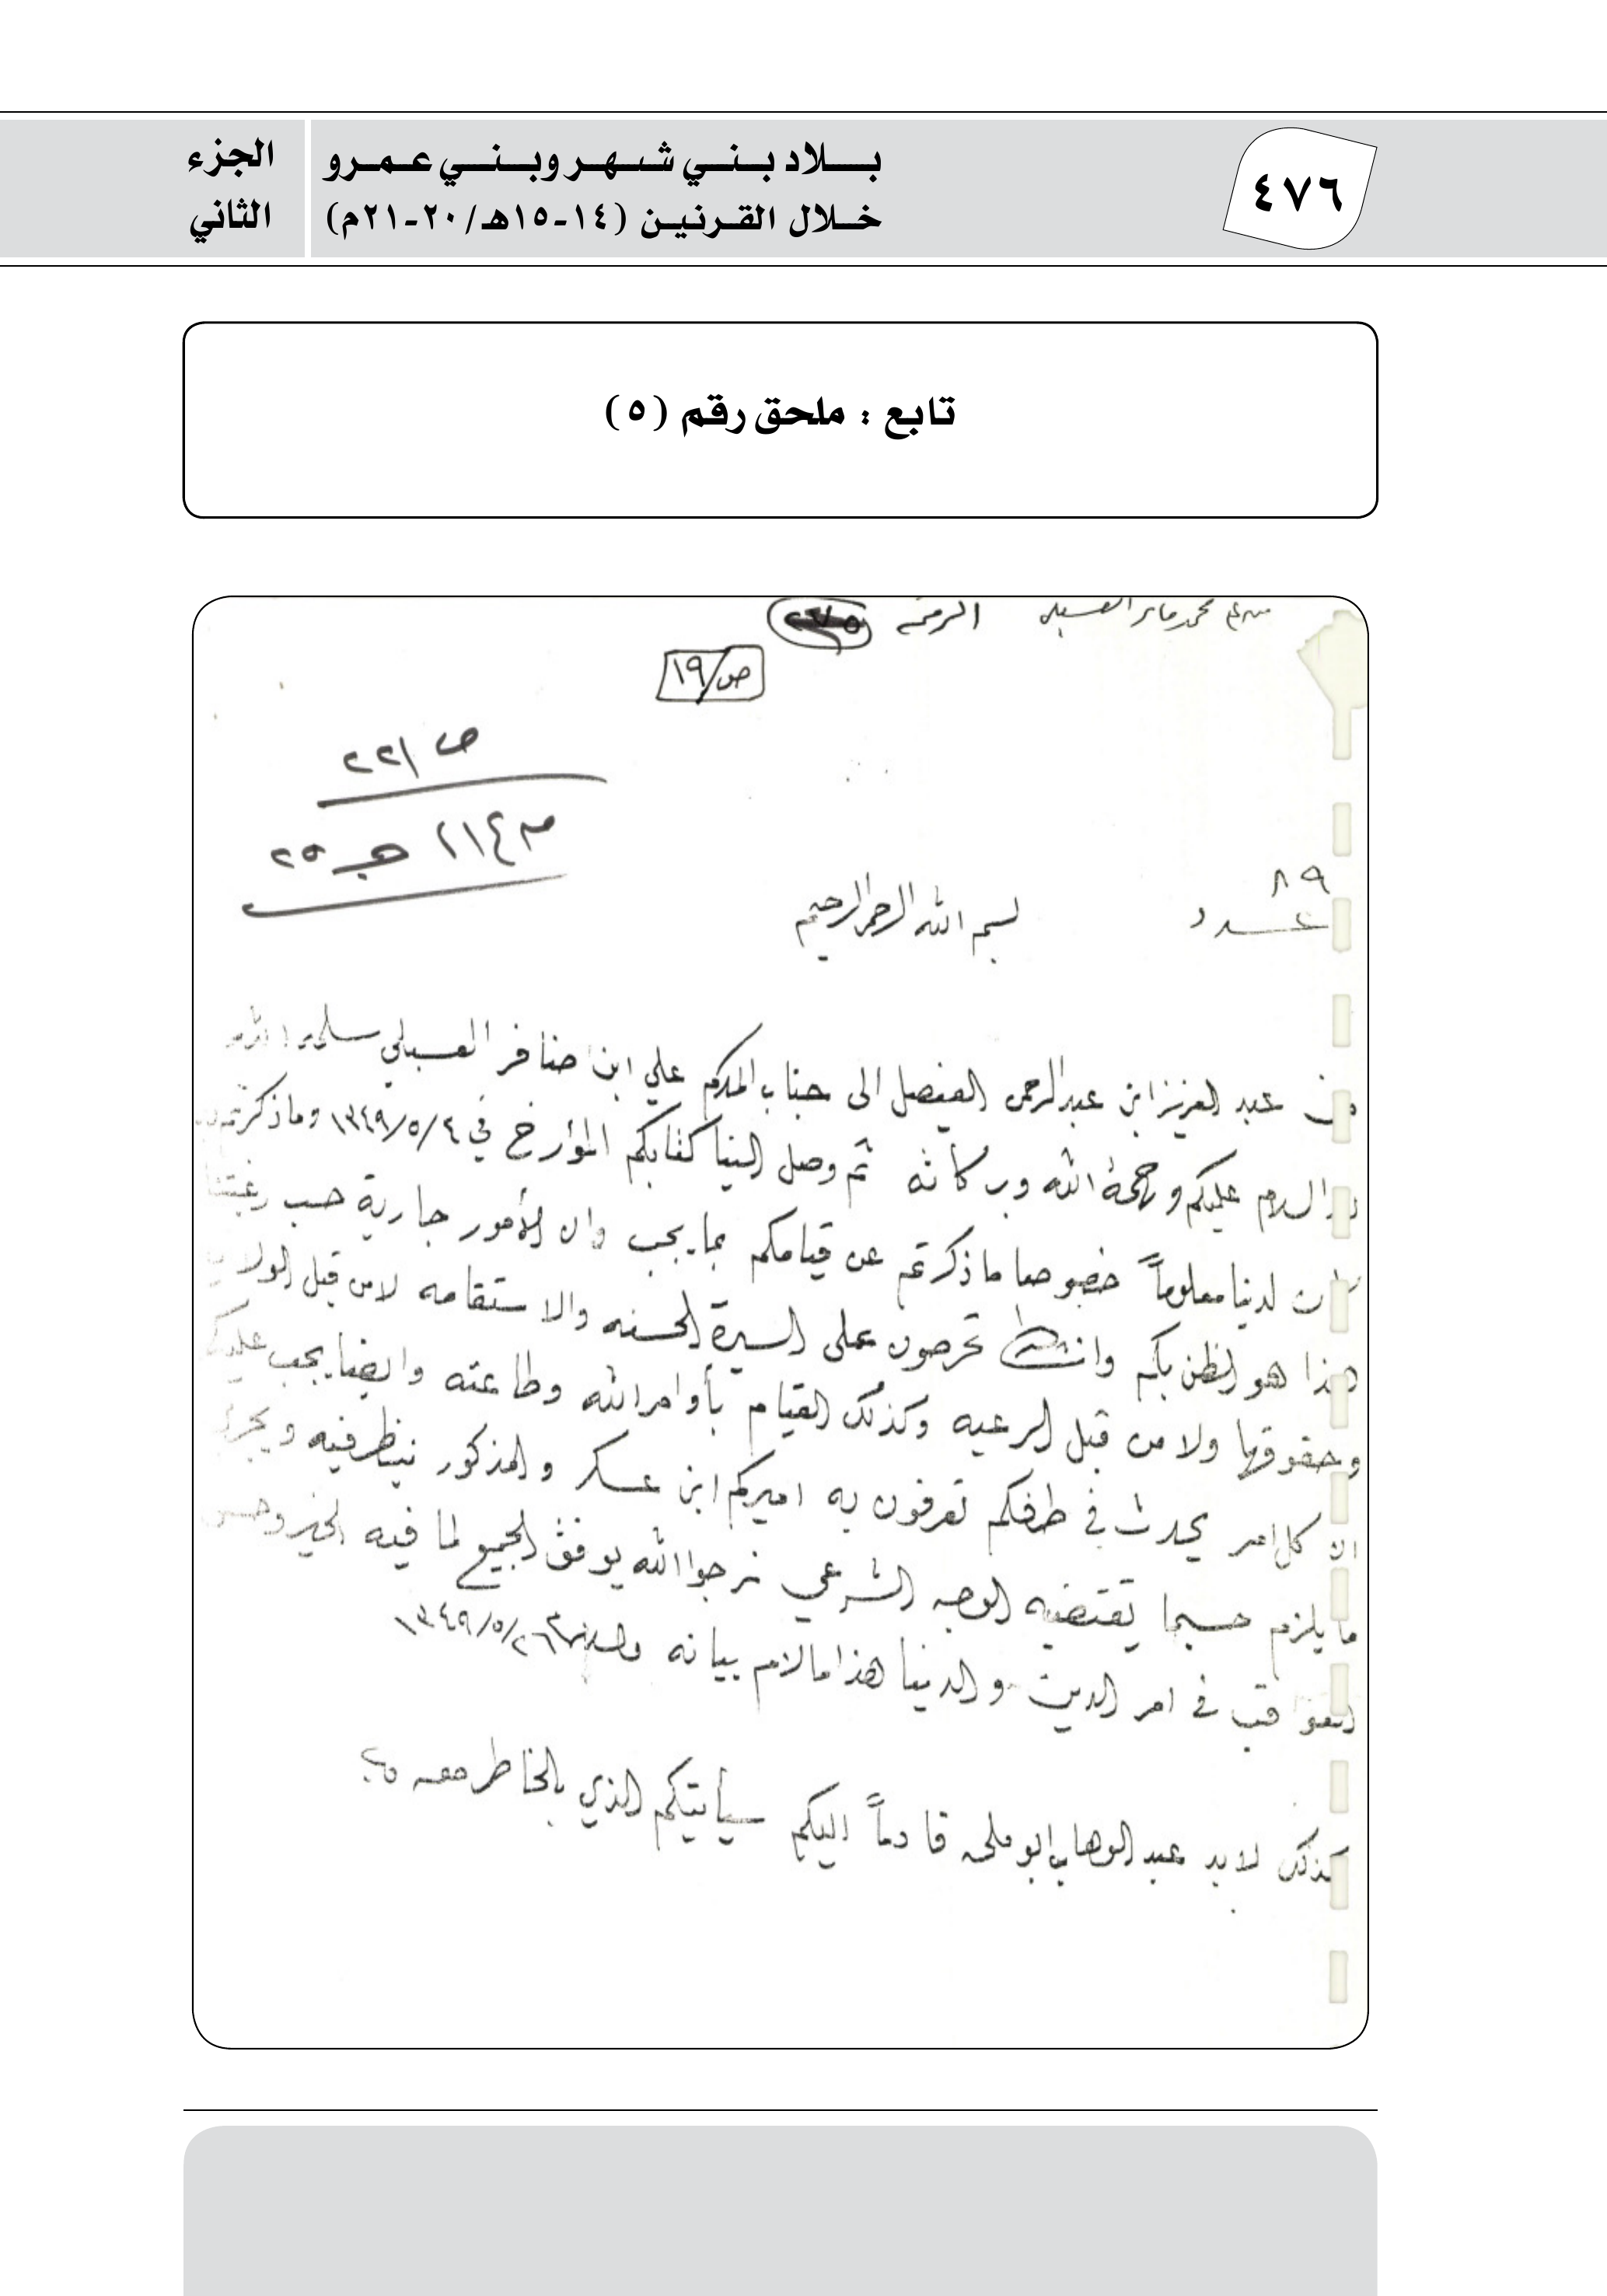 ٤٧٦
بلاد بني شهر وبني عمرو
خلال القرنين (١٤-١٥هـ/٢٠-٢١م)
الجزء
الثاني
تابع : ملحق رقم (٥)
محمد العسبلي الرمز
ص/١٩
ص ٢٢١
هـ ٢٥
٨٩
عدد
بسم الله الرحمن الرحيم
من عبد العزيز ابن عبدالرحمن الفيصل الى جناب المكرم علي ابن ضافر العسبلي سلمه الله
السلام عليكم ورحمة الله وبركاته ثم وصل الينا كتابكم المؤرخ في ١٣٤٩/٥/٤ وما ذكرتم
كان لدينا معلوماً خصوصا ما ذكرتم عن قيامكم بما يجب وان الأمور جارية حسب رغبتنا
هذا هو الظن بكم تحرصون على السيرة الحسنه والاستقامه لا من قبل الولايه
وحقوقها ولا من قبل الرعيه وكذلك القيام بأوامر الله وطاعته وايضا يجب عليكم
ان كل امر يحدث في طرفكم تعرفون به اميركم ابن عسكر والمذكور ينظر فيه ويجري
ما يلزم حسبما يقتضيه الوجه الشرعي نرجوا الله يوفق الجميع لما فيه الخير وحسن
العواقب في امر الدين والدنيا هذا ما لزم بيانه والسلام ١٣٤٩/٥/٢٦
كذلك لابد عبد الوهاب ابو ملحه قادماً اليكم سيأتيكم الذي بالخاطر معه